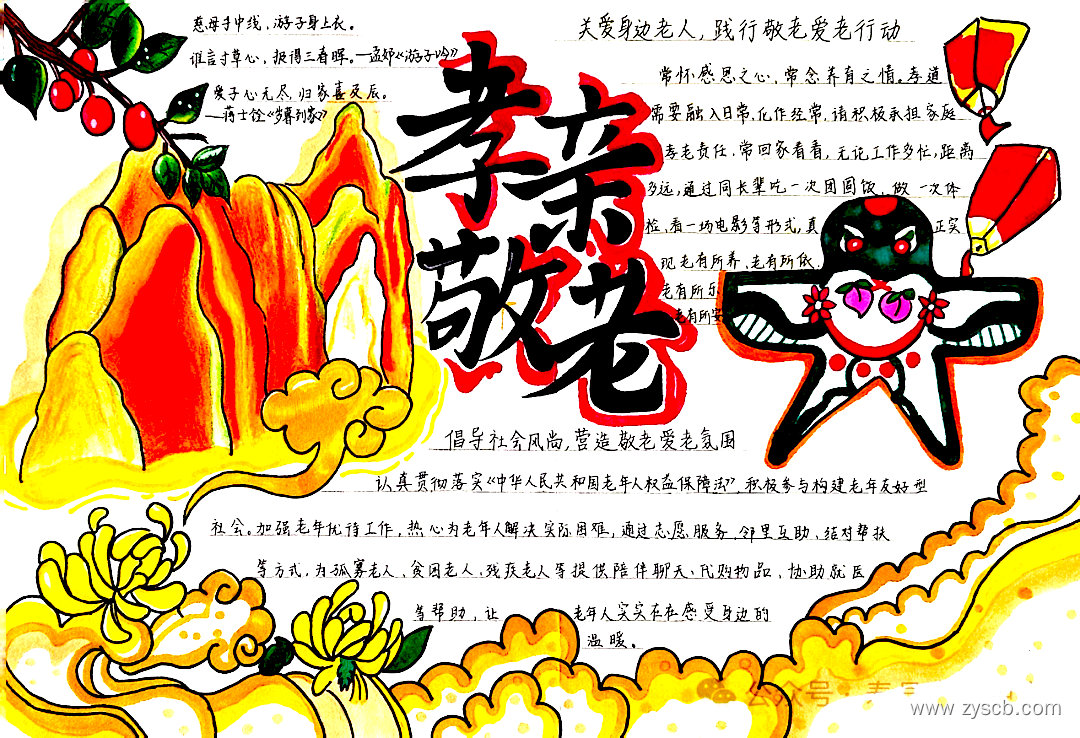 慈母手中线，游子身上衣。
谁言寸草心，报得三春晖。—孟郊《游子吟》
爱子心无尽，归家喜及辰。
—蒋士铨《岁暮到家》
孝亲
敬老
关爱身边老人，践行敬老爱老行动
常怀感恩之心，常念养育之情。孝道
需要融入日常，化作经常，请积极承担家庭
孝老责任，常回家看看，无论工作多忙，距离
多远，通过同长辈吃一次团圆饭、做一次体
检、看一场电影等形式，真 正实
现老有所养、老有所依、
老有所乐
老有所安
倡导社会风尚，营造敬老爱老氛围
认真贯彻落实《中华人民共和国老年人权益保障法》，积极参与构建老年友好型
社会。加强老年优待工作，热心为老年人解决实际困难，通过志愿服务、邻里互助、结对帮扶
等方式，为孤寡老人、贫困老人、残疾老人等提供陪伴聊天、代购物品、协助就医
等帮助，让 老年人实实在在感受身边的
温暖。
公众号
www.zyscb.com